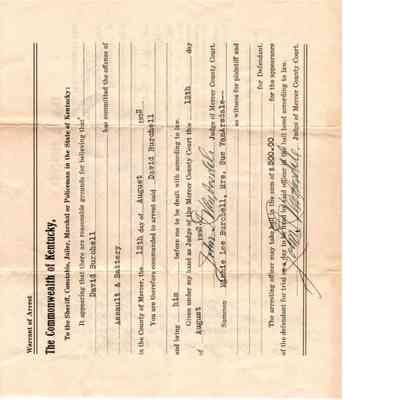 Warrant of Arrest
The Commonwealth of Kentucky,
To the Sheriff, Constable, Jailer, Marshal or Policeman in the State of Kentucky:
It appearing that there are reasonable grounds for believing that
David Burchell
has committed the offense of
Assault & Battery
in the County of Mercer, the 12th day of August 195
You are therefore commanded to arrest said David Burchell
and bring him before me to be dealt with according to law.
Given under my hand as Judge of the Mercer County Court this 12th day
of August 195
Judge of Mercer County Court.
Summon Minnie Lee Burchell, Mrs. Sue VanArsdale--
as witness for plaintiff and
for Defendant.
The arresting officer may take bail in the sum of $ 500.00 for the appearance
of the defendant for trial on a day to be fixed by said officer in the bail bond according to law.
Judge of Mercer County Court.